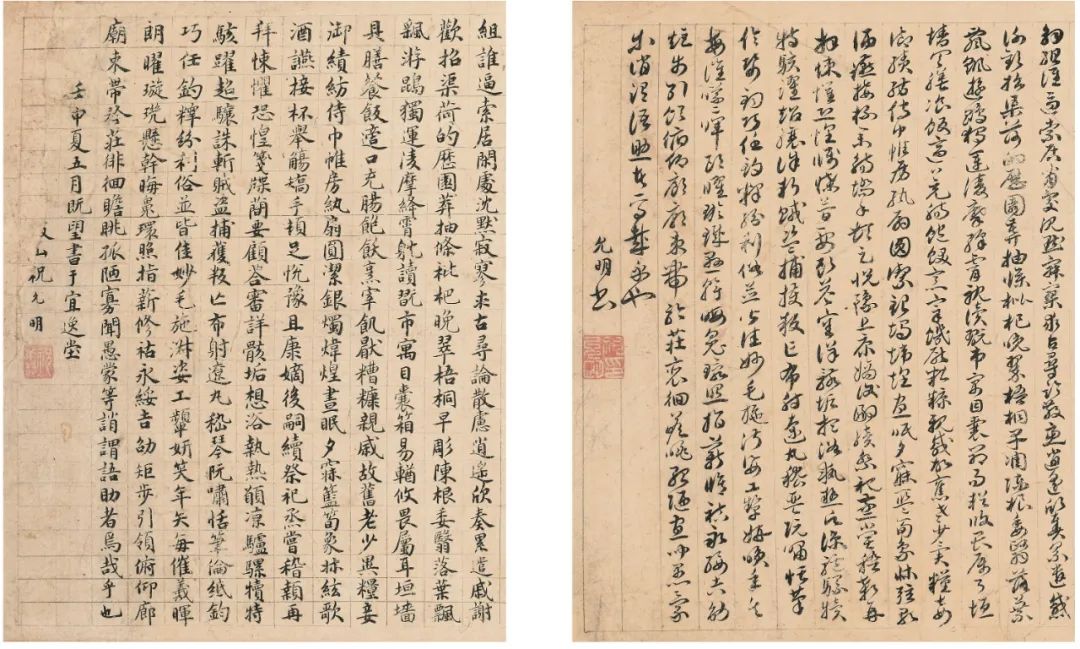 組誰逼索居閑處沈默寂寥求古尋論散慮逍遙欣奏累遣慼謝
歡招渠荷的歷園莽抽條枇杷晚翠梧桐早彫陳根委翳落葉飄
飄游鵾獨運凌摩絳霄耽讀翫市寓目囊箱易輶攸畏屬耳垣墻
具膳餐飯適口充腸飽飫烹宰飢厭糟糠親戚故舊老少異糧妾
御績紡侍巾帷房紈扇圓潔銀燭煒煌晝眠夕寐籃筍象牀絃歌
酒讌接杯舉觴矯手頓足悅豫且康嫡後嗣續祭祀烝嘗稽顙再
拜悚懼恐惶箋牒簡要顧答審詳骸垢想浴執熱願凉驢騾犢特
駭躍超驤誅斬賊盜捕獲叛亡布射遼丸嵇琴阮嘯恬筆倫紙鈞
巧任釣釋紛利俗並皆佳妙毛施淋姿工顰妍笑年矢每催羲暉
朗曜璇璣懸斡晦晁環照指薪修祜永綏吉劭矩步引領俯仰廊
廟束帶矜莊徘徊瞻眺孤陋寡聞愚蒙等誚謂語助者焉哉乎也
壬申夏五月既望書于宜逸堂
枝山祝允明
解組誰逼索居閑處沈默寂寥求古尋論散慮逍遙欣奏累遣慼
謝歡招渠荷的歷園莽抽條枇杷晚翠梧桐早凋陳根委翳落葉
飄飖遊鵾獨運凌摩絳霄耽讀翫市寓目囊箱易輶攸畏屬耳垣
墻具膳飡飯適口充腸飽飫烹宰飢厭糟糠親戚故舊老少異糧妾
御績紡侍巾帷房紈扇圓潔銀燭煒煌晝眠夕寐藍筍象牀弦歌
酒讌接杯舉觴矯手頓足悅豫且康嫡後嗣續祭祀蒸嘗稽顙再
拜悚懼恐惶箋牒簡要顧答審詳骸垢想浴執熱願凉驢騾犢
特駭躍超驤誅斬賊盜捕獲叛亡布射遼丸嵇琴阮嘯恬筆
倫紙鈞巧任釣釋紛利俗並皆佳妙毛施淑姿工顰妍笑年矢
每催羲暉朗曜璇璣懸斡晦魄環照指薪修祜永綏吉劭
矩步引領俯仰廊廟束帶矜莊徘徊瞻眺孤陋寡聞愚蒙
等誚謂語助者焉哉乎也
允明書